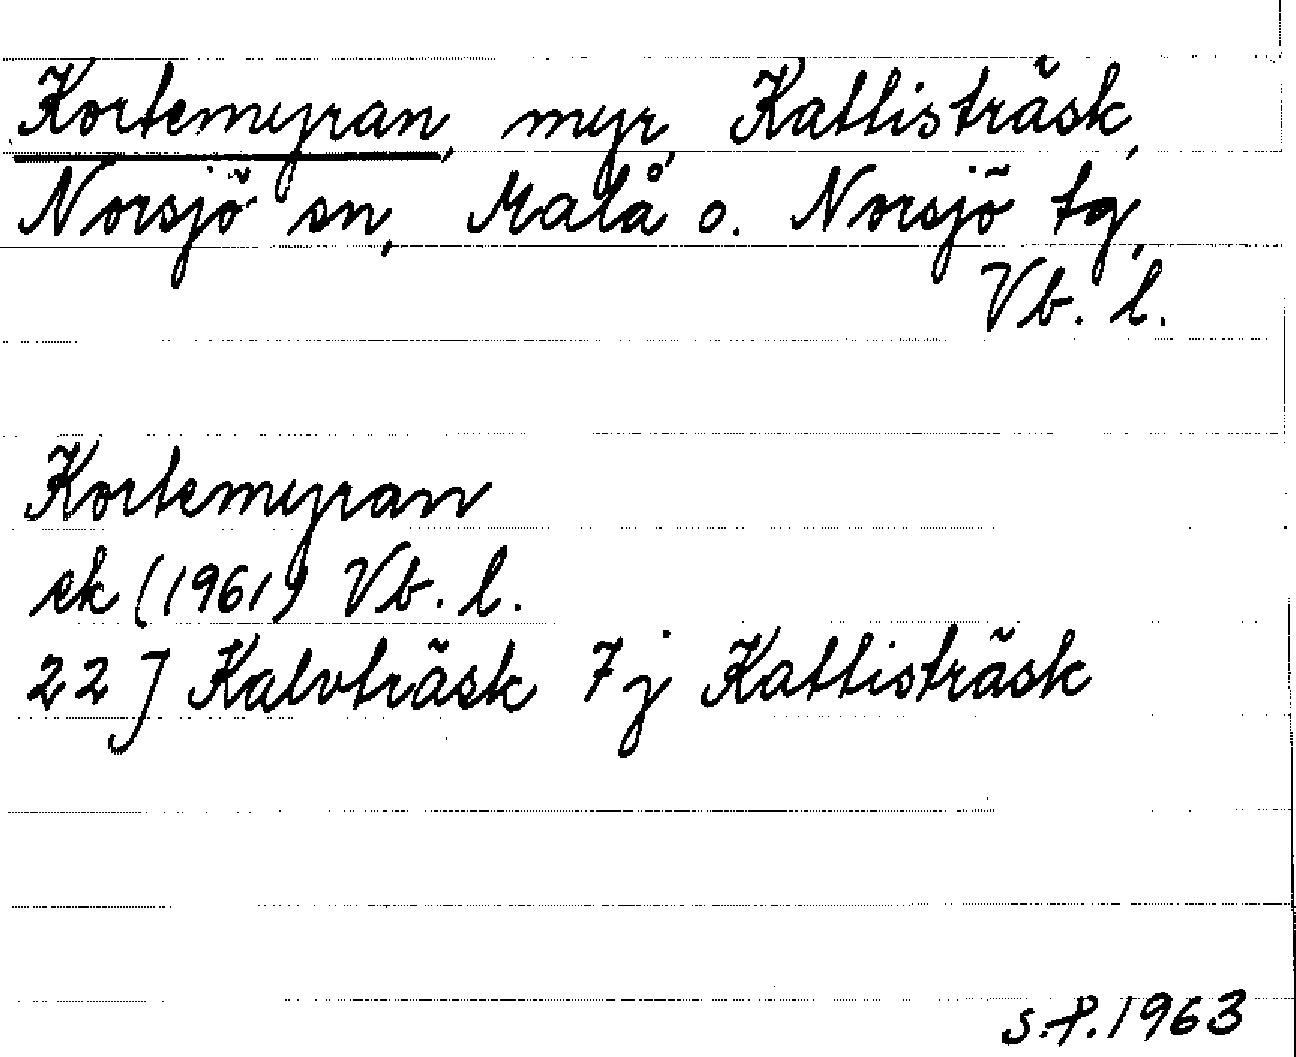 Kortemyran, myr, Kattisträsk,
Norsjö sn, Malå o. Norsjö tg,
Vb. l.
Kortemyran
ek (1961) Vb. l.
22 J Kalvträsk 7j Kattisträsk
S.P. 1963